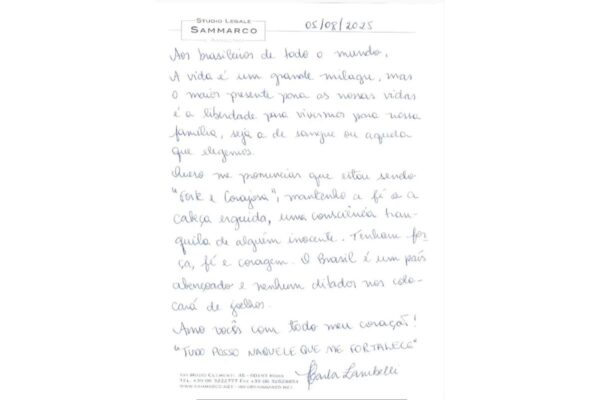 STUDIO LEGALE
SAMMARCO
05/08/2025
Aos brasileiros de todo o mundo,
A vida é um grande milagre, mas
o maior presente para as nossas vidas
é a liberdade para vivermos para nossa
família, seja a de sangue ou aquela
que elegemos.
Quero me pronunciar que estou sendo
"Forte e Corajosa", mantenho a fé e a
cabeça erguida, uma consciência tran-
quila de alguém inocente. Tenham for-
ça, fé e coragem. O Brasil é um país
abençoado e nenhum ditador nos colo-
cará de joelhos.
Amo vocês com todo meu coração!
"TUDO POSSO NAQUELE QUE ME FORTALECE"
Carla Zambelli
VIA MUZIO CLEMENTI, - 00193 ROMA
TEL. +39 06 FAX +39 06
WWW.SAMMARCO.NET - INFO@SAMMARCO.NET